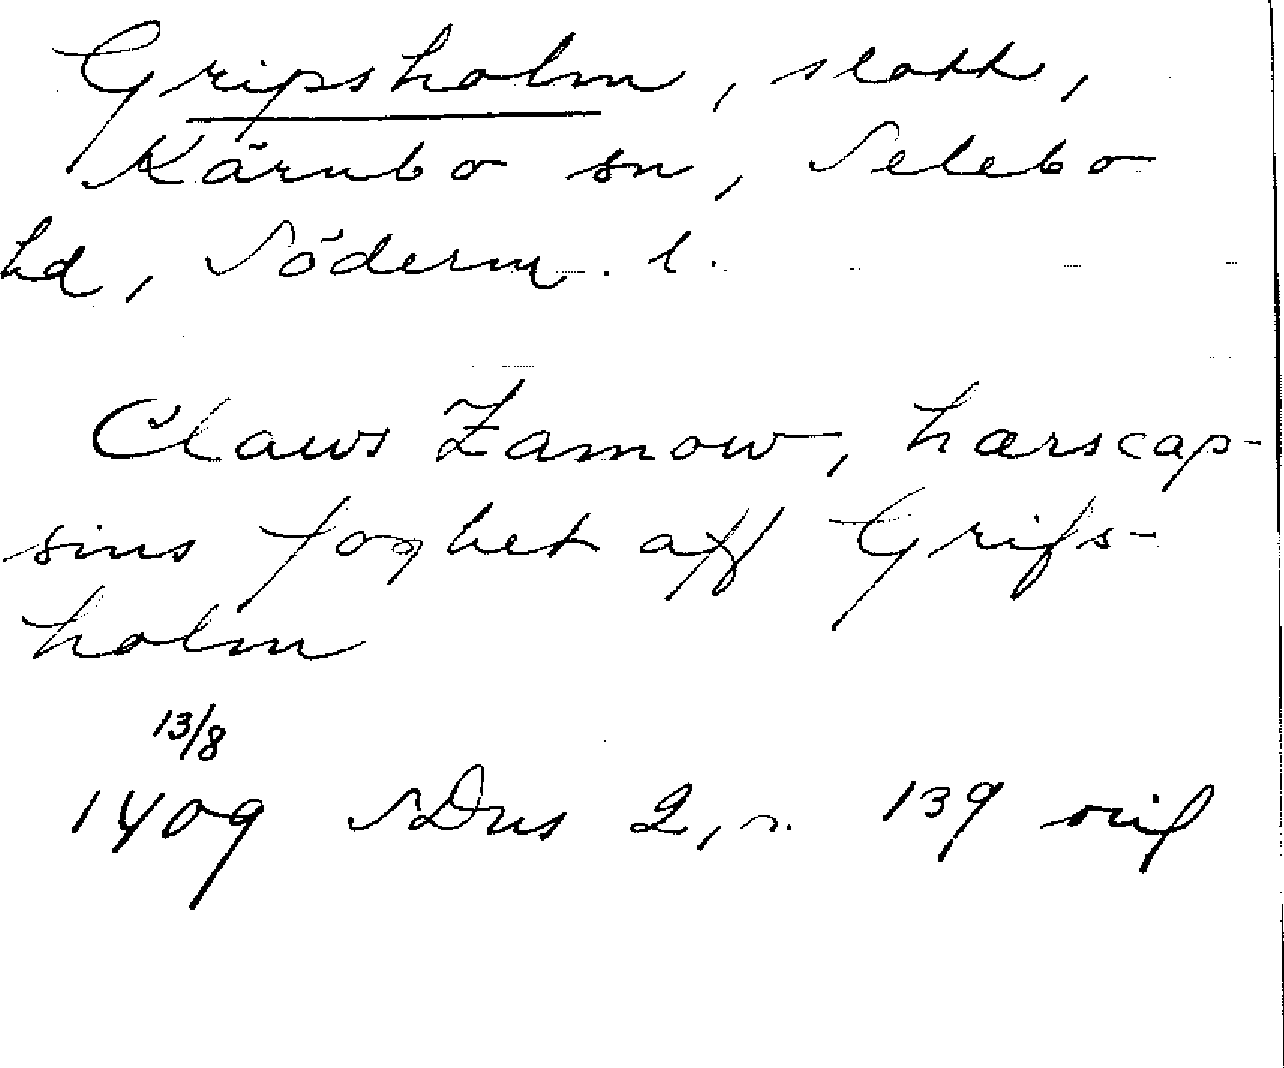 Gripsholm, slott,
Kärnbo sn, Selebo
hd, Söderm. l.
Claws Zamow, hærscap-
sins foghet aff Grifs-
holm
13/8
1409 SDns 2, s. 139